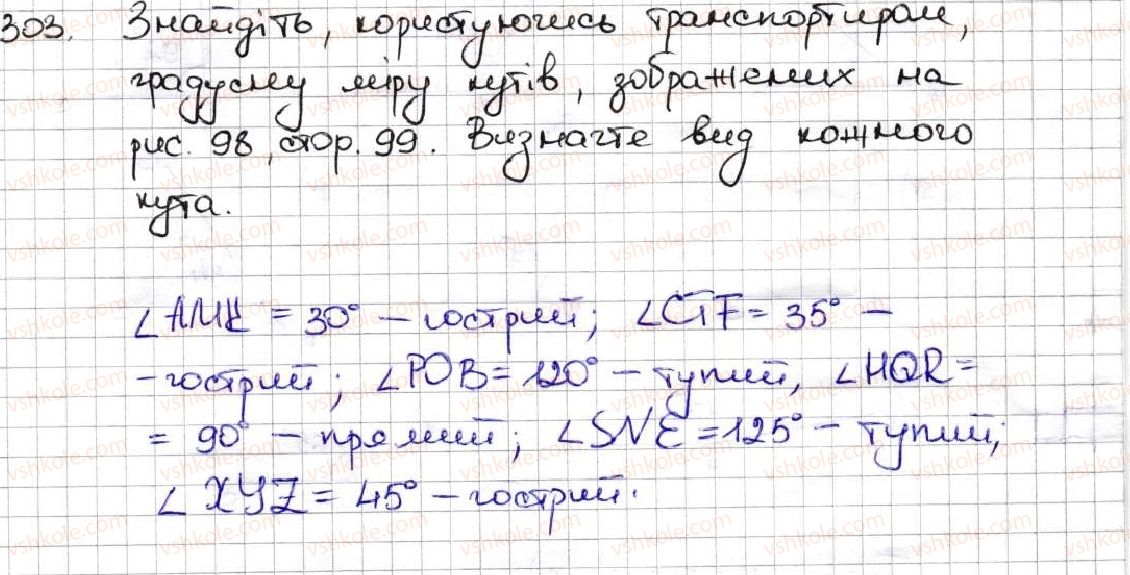 303. Знайдіть, користуючись транспортиром,
градусну міру кутів, зображених на
рис. 98, стор. 99. Визначте вид кожного
кута.
∠AMK = 30° – гострий; ∠CTF = 35° –
– гострий; ∠POB = 120° – тупий, ∠HQR =
= 90° – прямий; ∠SNE = 125° – тупий;
∠XYZ = 45° – гострий.